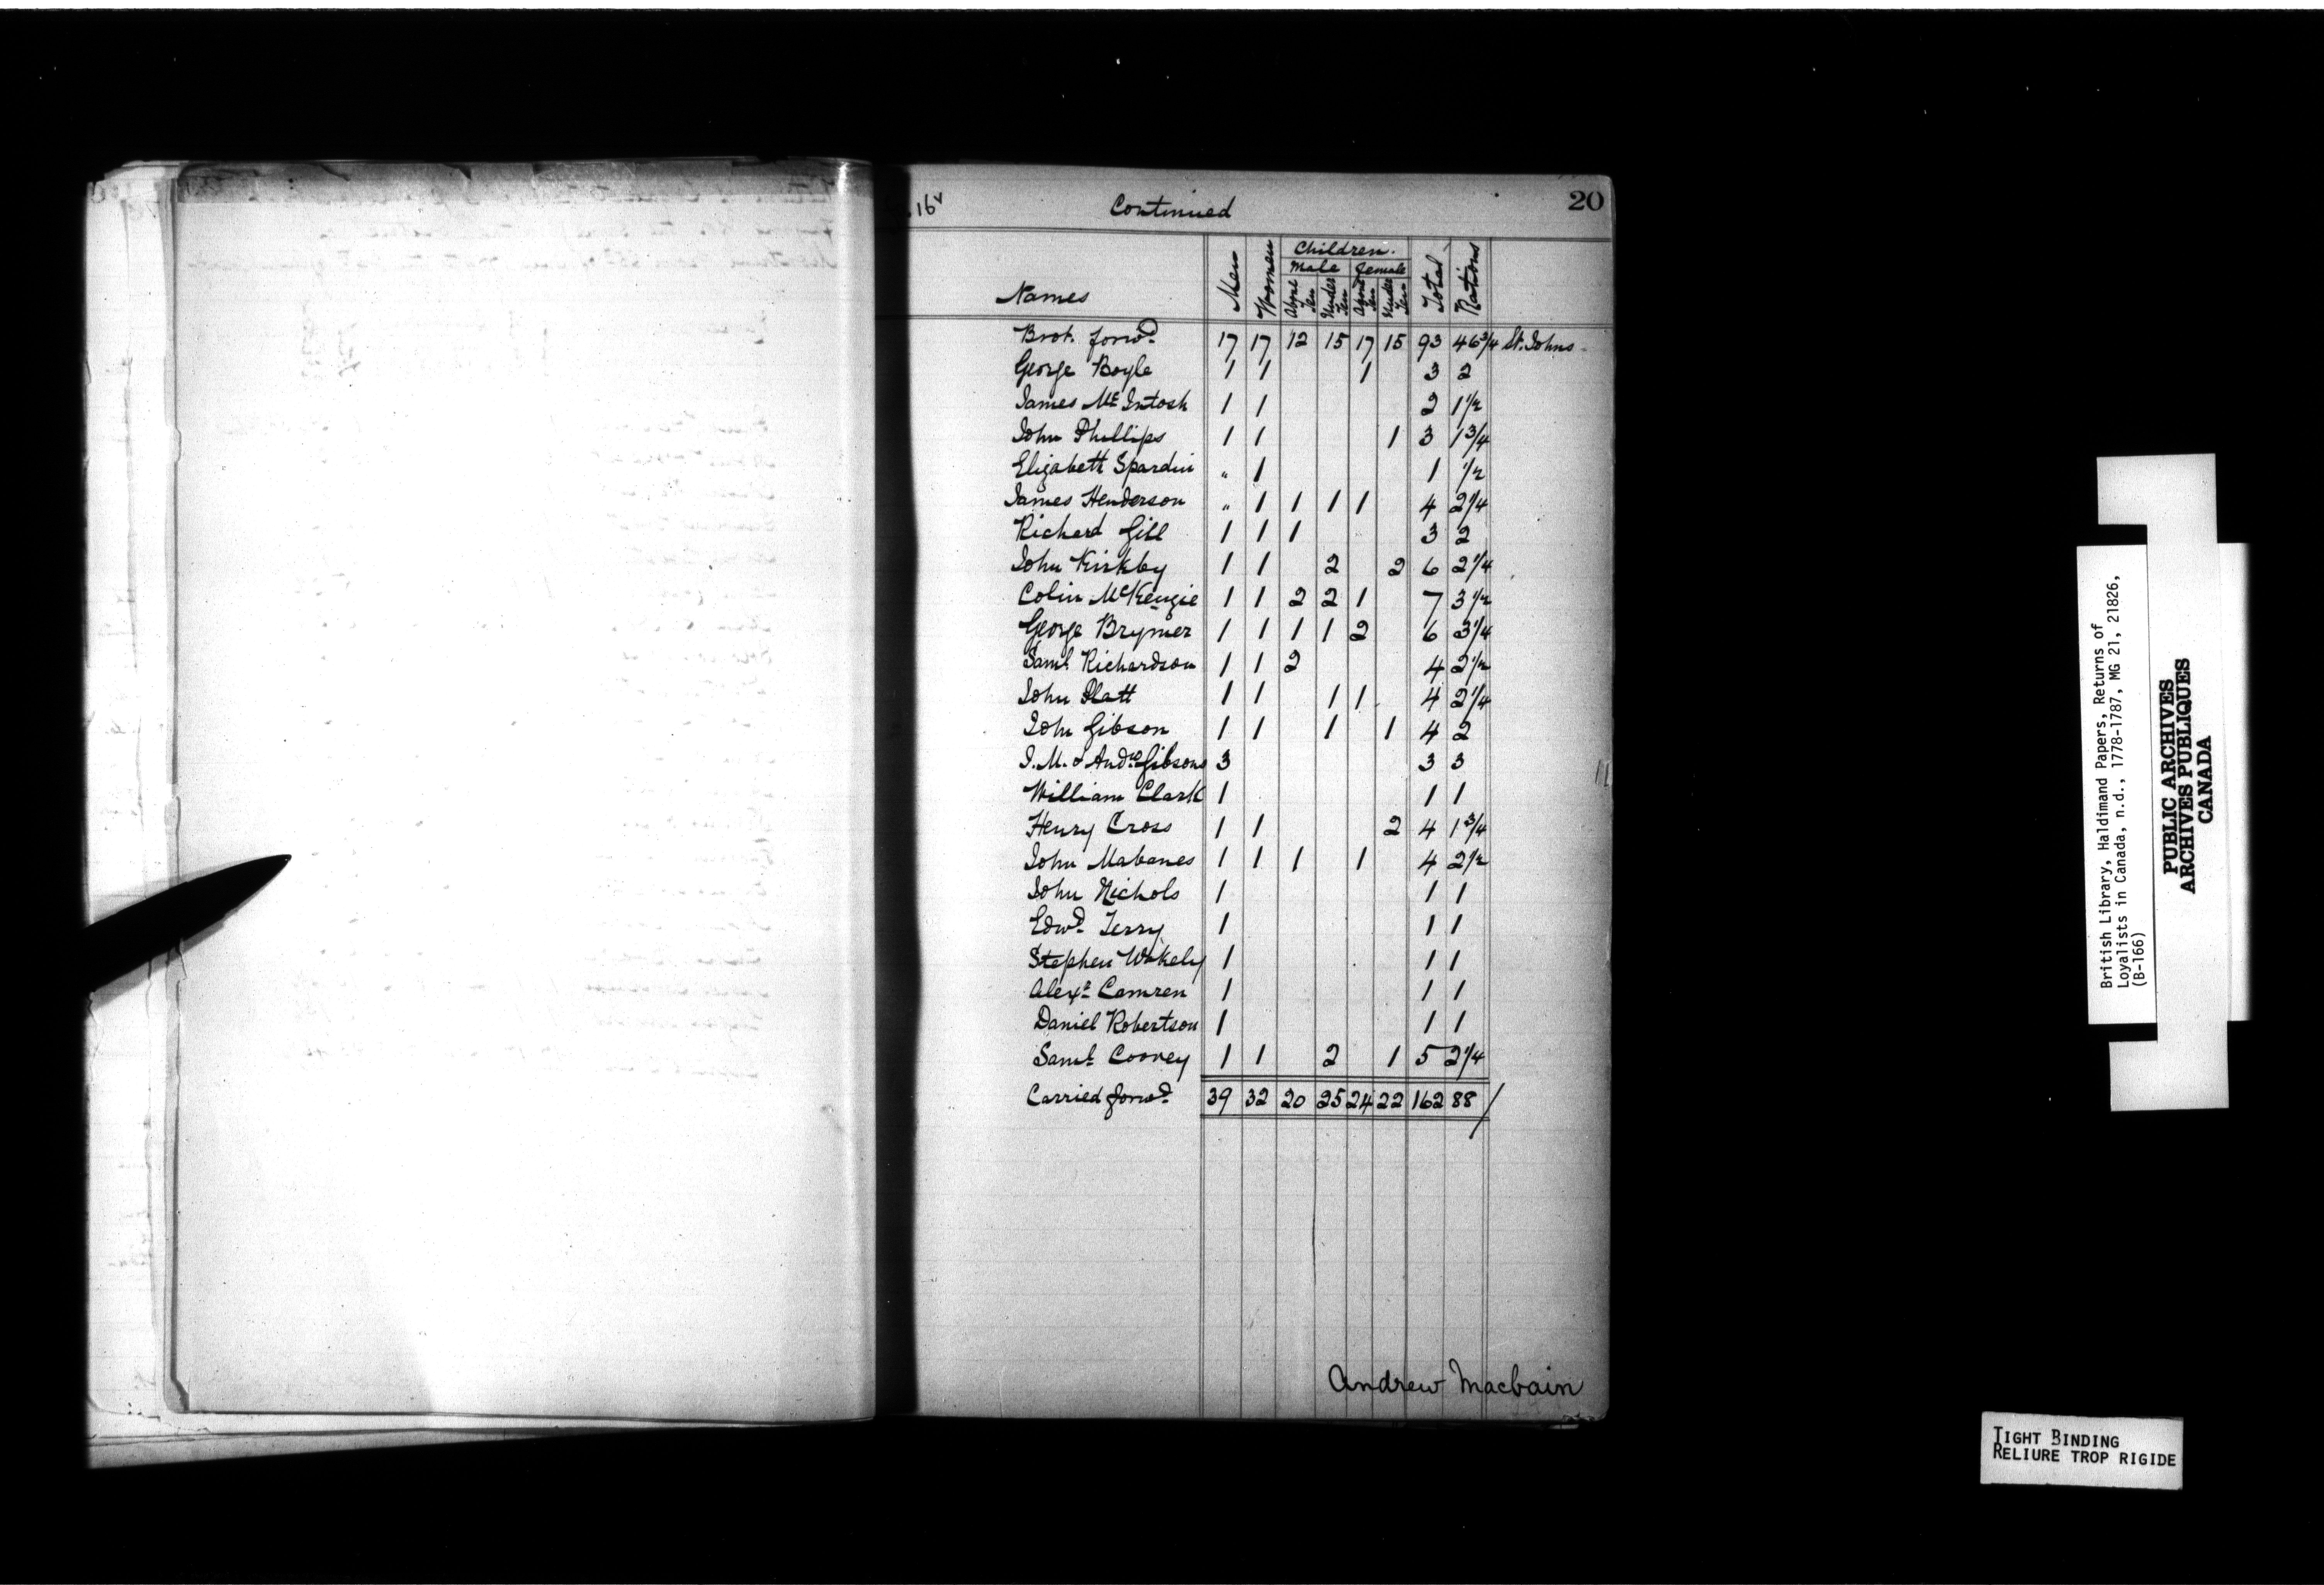 16v Continued 20
Names Men Women Children. Total Rations
Male Female
Above Ten Under Ten Above Ten Under Ten
Brot. forwd. 17 17 12 15 17 15 93 46 3/4 St. Johns
George Boyle 1 1 1 3 2
James McIntosh 1 1 2 1 1/2
John Phillips 1 1 1 3 1 3/4
Elizabeth Spardin " 1 1 1/2
James Henderson " 1 1 1 1 4 2 1/4
Richard Gill 1 1 1 3 2
John Kirkby 1 1 2 2 6 2 1/4
Colin McKenzie 1 1 2 2 1 7 3 1/2
George Brymer 1 1 1 1 2 6 3 1/4
Saml. Richardson 1 1 2 4 2 1/2
John Platt 1 1 1 1 4 2 1/4
John Gibson 1 1 1 1 4 2
J. M. & Andw. Gibsons 3 3 3
William Clark 1 1 1
Henry Cross 1 1 2 4 1 3/4
John Mabanes 1 1 1 1 4 2 1/2
John Nichols 1 1 1
Edwd. Terry 1 1 1
Stephen Wakely 1 1 1
Alexr. Camren 1 1 1
Daniel Robertson 1 1 1
Saml. Coovey 1 1 2 1 5 2 1/4
Carried forwd. 39 32 20 25 24 22 162 88
Andrew Macbain
British Library, Haldimand Papers, Returns of
Loyalists in Canada, n.d., 1778-1787, MG 21, 21826,
(B-166)
PUBLIC ARCHIVES
ARCHIVES PUBLIQUES
CANADA
TIGHT BINDING
RELIURE TROP RIGIDE